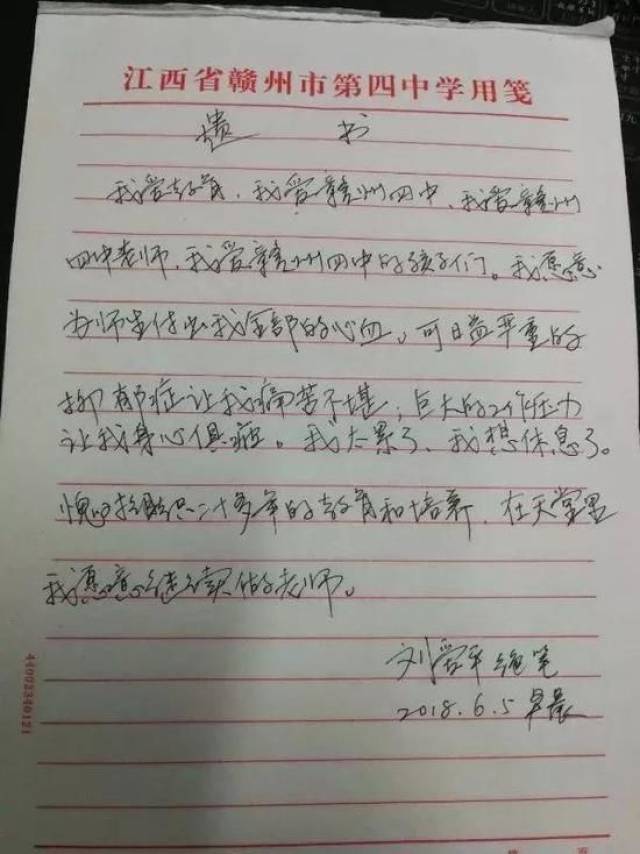 江西省赣州市第四中学用笺
遗 书
我爱教育，我爱赣州四中，我爱赣州
四中老师，我爱赣州四中的孩子们。我愿意
为师生付出我全部的心血，可日益严重的
抑郁症让我痛苦不堪；巨大的工作压力
让我身心俱疲。我太累了，我想休息了。
愧对组织二十多年的教育和培养，在天堂里
我愿意继续做老师。
刘爱平 绝笔
2018.6.5 早晨
44002340121